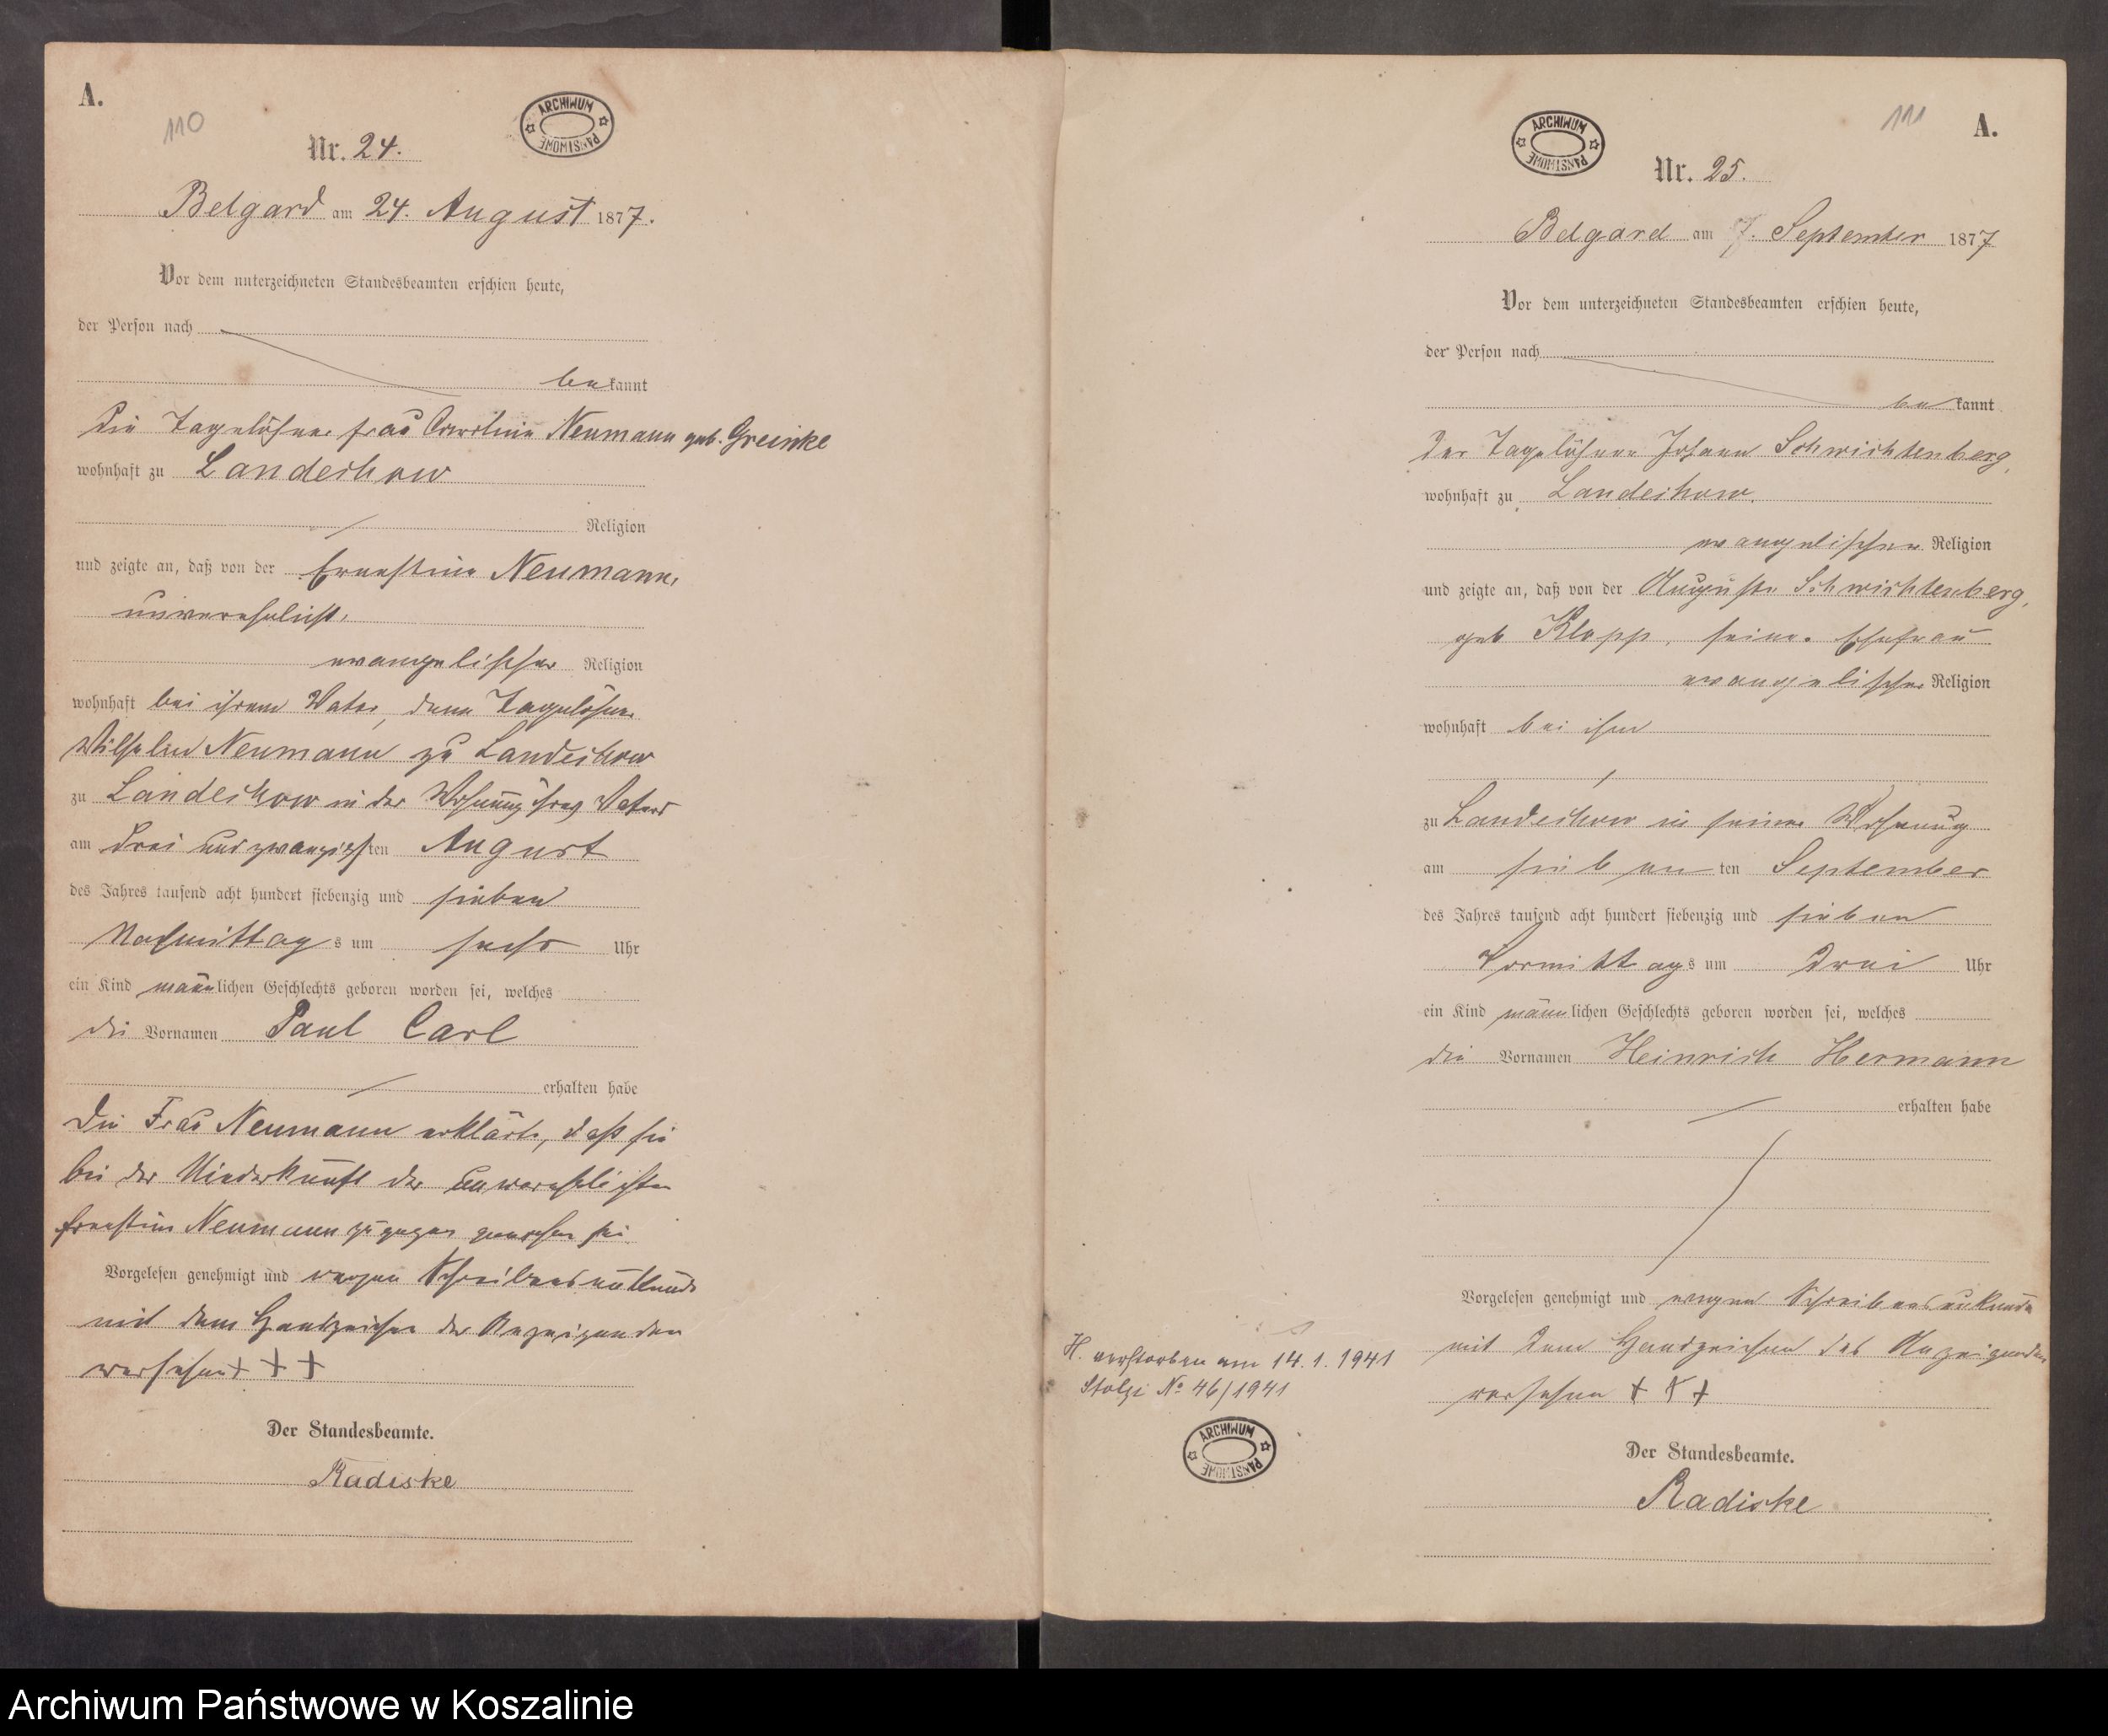 A.
110
Nr. 24.
ARCHIWUM PAŃSTWOWE
Belgard am 24. August 1877.
Vor dem unterzeichneten Standesbeamten erschien heute,
der Person nach
bekannt
die Tagelöhner frau Caroline Neumann geb. Greinke
wohnhaft zu Landechow
Religion
und zeigte an, daß von der Ernestine Neumann,
unverehelicht,
evangelischer Religion
wohnhaft bei ihrem Vater, dem Tagelöhner
Wilhelm Neumann zu Landechow
zu Landechow in der Wohnung ihres Vaters
am drei und zwanzigsten August
des Jahres tausend acht hundert siebenzig und sieben
Nachmittags um sechs Uhr
ein Kind männlichen Geschlechts geboren worden sei, welches
die Vornamen Paul Carl
erhalten habe
Die Frau Neumann erklärte, daß sie
bei der Niederkunft der unverehelichten
Ernestine Neumann zugegen gewesen sei.
Vorgelesen genehmigt und wegen Schreibensunkunde
mit dem Handzeichen der Anzeigenden
versehen + + +
Der Standesbeamte.
Radiske
111
A.
ARCHIWUM PAŃSTWOWE
Nr. 25.
Belgard am 7. September 1877
Vor dem unterzeichneten Standesbeamten erschien heute,
der Person nach
bekannt
der Tagelöhner Johann Schwichtenberg,
wohnhaft zu Landechow,
evangelischer Religion
und zeigte an, daß von der Auguste Schwichtenberg,
geb Klopp, seiner Ehefrau
evangelischer Religion
wohnhaft bei ihm
zu Landechow in seiner Wohnung
am siebenten September
des Jahres tausend acht hundert siebenzig und sieben
Vormittags um drei Uhr
ein Kind männlichen Geschlechts geboren worden sei, welches
die Vornamen Heinrich Hermann
erhalten habe
Vorgelesen genehmigt und wegen Schreibensunkunde
mit dem Handzeichen des Anzeigenden
versehen + + +
Der Standesbeamte.
Radiske
H. verstorben am 14.1.1941
Stolp № 46/1941
ARCHIWUM PAŃSTWOWE
Archiwum Państwowe w Koszalinie